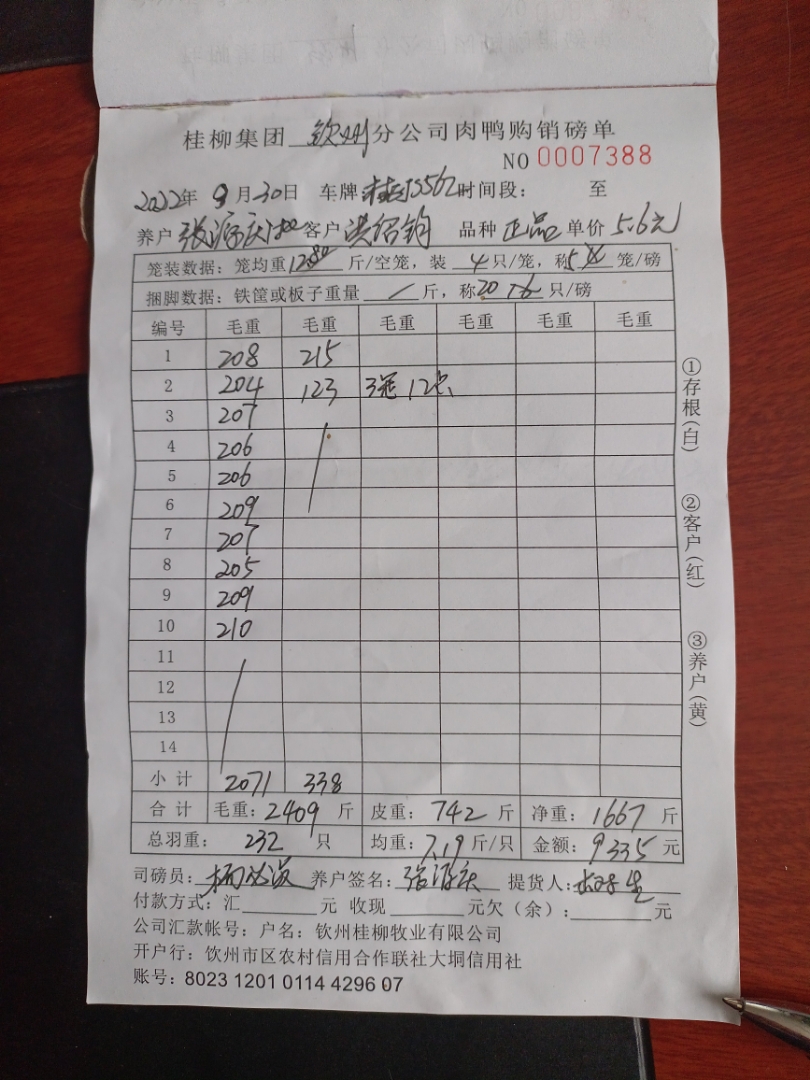 桂柳集团 钦州 分公司肉鸭购销磅单
NO 0007388
2022年 9月30日 车牌 时间段： 至
养户 客户 洪绍钧 品种 正品 单价 5.6元
笼装数据：笼均重1280斤/空笼，装 4 只/笼，称5 笼/磅
捆脚数据：铁筐或板子重量 / 斤，称20 只/磅
编号 毛重 毛重 毛重 毛重 毛重 毛重
1 208 215
2 204 123 3笼 12只
3 207
4 206
5 206
6 209
7 207
8 205
9 209
10 210
11
12
13
14
小计 2071 338
合计 毛重：2409 斤 皮重：742 斤 净重：1667 斤
总羽重： 232 只 均重：7.19 斤/只 金额：9335 元
司磅员： 养户签名： 提货人：
付款方式：汇 元 收现 元欠（余）： 元
公司汇款帐号：户名：钦州桂柳牧业有限公司
开户行：钦州市区农村信用合作联社大垌信用社
账号：8023 1201 0114 4296 07
①存根(白)
②客户(红)
③养户(黄)